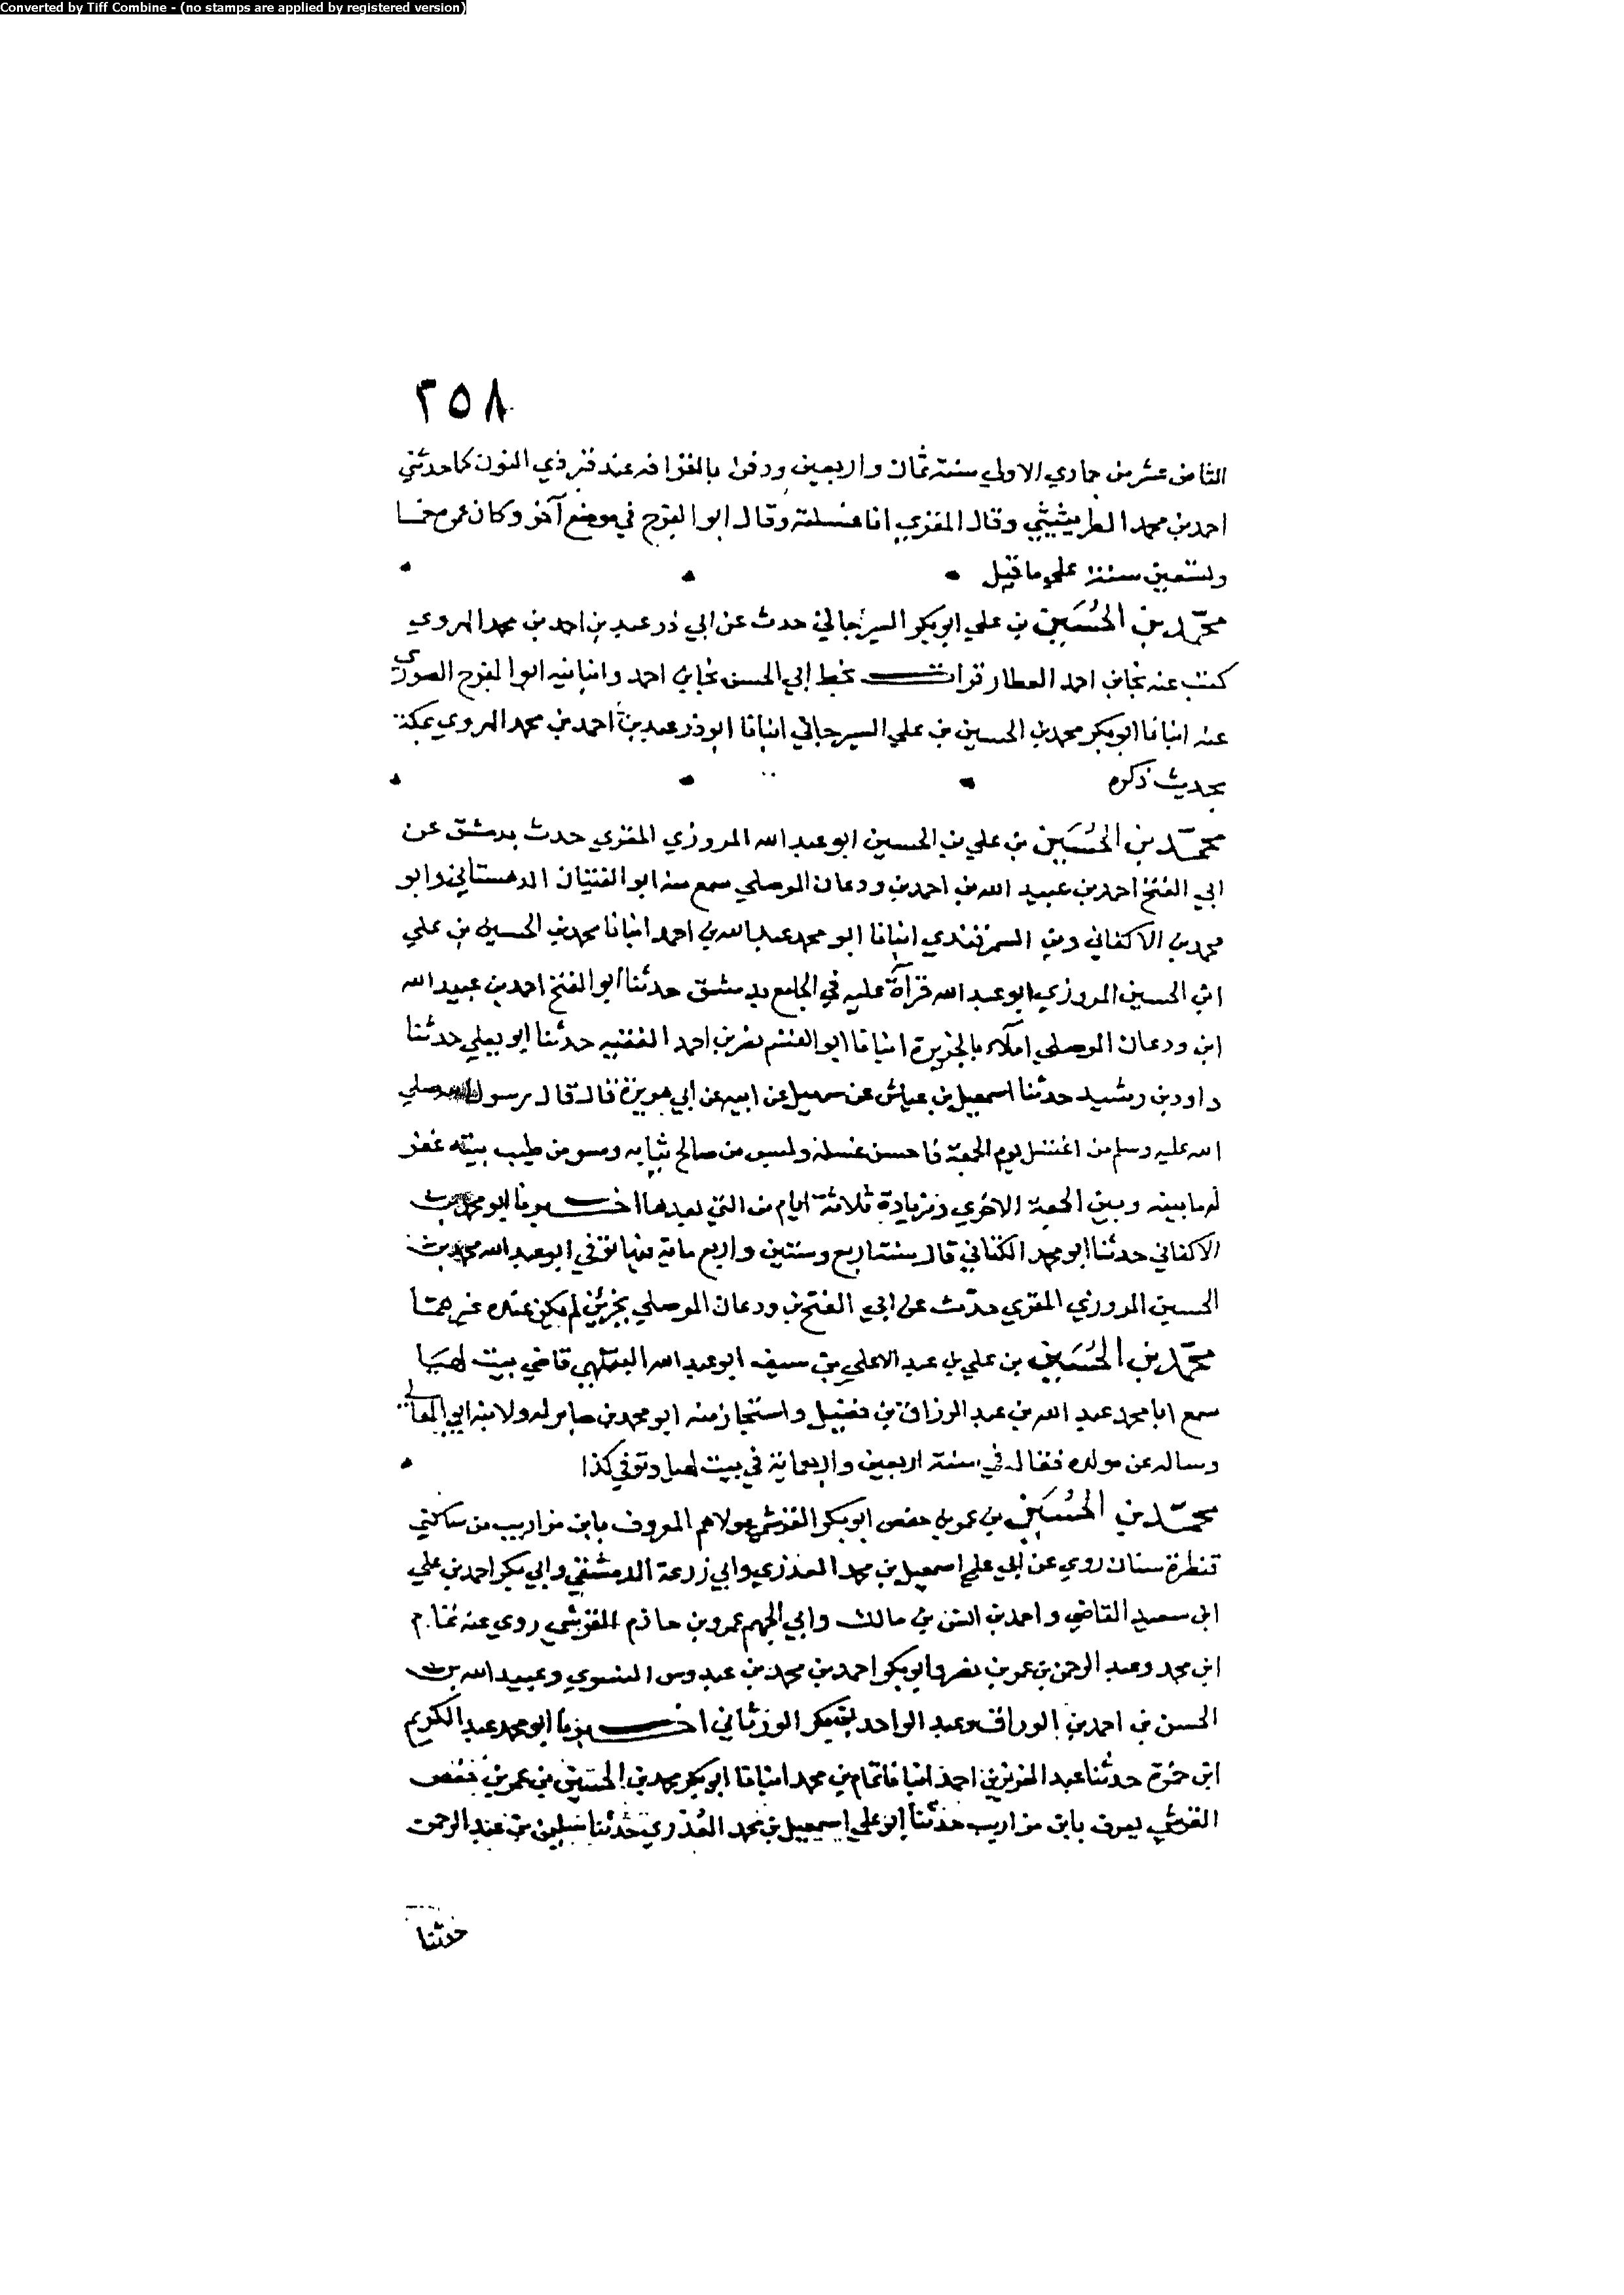 Converted by Tiff Combine - (no stamps are applied by registered version)
٢٥٨
الثامن عشر من جمادي الاولي سنة ثمان واربعين ودفن بالقرافه عند قبر ذي النون كما حدثني
احمد بن محمد الطريثيثي وقال المقري انا غسلته وقال ابو الفرج في موضع آخر وكان عمره خمسا
وتسعين سنة علي ما قيل
محمد بن الحُسَين بن علي ابو بكر السيرجاني حدث عن ابي ذر عبد بن احمد بن محمد الهروي
كتب عنه نجا بن احمد العطار قرات بخط ابي الحسن نجا بن احمد وانبانيه ابو الفرج الصوري
عنه انبانا ابو بكر محمد بن الحسين بن علي السيرجاني انبانا ابو ذر عبد بن احمد بن محمد الهروي بمكة
بحديث ذكره
محمد بن الحُسَين بن علي بن الحسين ابو عبد الله المروزي المقري حدث بدمشق عن
ابي الفتح احمد بن عبيد الله بن احمد بن ودعان الموصلي سمع منه ابو الفتيان الدهستاني وابو
محمد بن الاكفاني وبن السمرقندي انبانا ابو محمد عبد الله بن احمد انبانا محمد بن الحسين بن علي
ابن الحسين المروزي ابو عبد الله قرآة عليه في الجامع بدمشق حدثنا ابو الفتح احمد بن عبيد الله
ابن ودعان الموصلي املآء بالجزيرة انبانا ابو القسم نصر بن احمد الفقيه حدثنا ابو يعلي حدثنا
داود بن رشيد حدثنا اسمعيل بن عياش عن سهيل عن ابيه عن ابي هريرة قال قال رسول الله صلي
الله عليه وسلم من اغتسل يوم الجمعة فاحسن غسله ولبس من صالح ثيابه ومس من طيب بيته غفر
له ما بينه وبين الجمعة الاخري وزيادة ثلاثة ايام من التي بعدها اخبرنا ابو محمد بن
الاكفاني حدثنا ابو محمد الكتاني قال سنة اربع وستين واربع ماية فيها توفي ابو عبد الله محمد بن
الحسين المروزي المقري حدّث عن ابي الفتح بن ودعان الموصلي بجزئين لم يكن عنده غيرهما
محمد بن الحُسَين بن علي بن عبد الاعلي بن سيف ابو عبد الله البتلهي قاضي بيت لهيا
سمع ابا محمد عبد الله بن عبد الرزاق بن فضيل واستجاز منه ابو محمد بن صابر له ولابنه ابي المعالي
وساله عن مولده فقال في سنة اربعين واربعماية في بيت لهيا وتوفي كذا
محمد بن الحُسَين بن عمر بن حفص ابو بكر القرشي مولاهم المعروف بابن مزاريب من ساكني
قنطرة سنان روي عن ابي علي اسمعيل بن محمد العذري وابي زرعة الدمشقي وابي بكر احمد بن علي
ابن سعيد القاضي واحمد بن انس بن مالك وابي الجهم عمرو بن حازم القرشي روي عنه تمام
ابن محمد وعبد الرحمن بن عمر بن نصر وابو بكر احمد بن محمد بن عبدوس النسوي وعبيد الله بن
الحسن بن احمد بن الوراق وعبد الواحد بن بكر الورثاني اخبرنا ابو محمد عبد الكريم
ابن حمزة حدثنا عبد العزيز بن احمد انبانا تمام بن محمد انبانا ابو بكر محمد بن الحسين بن عمر بن حفص
القرشي يعرف بابن مزاريب حدثنا ابو علي اسمعيل بن محمد العُذري حدثنا سليمن بن عبد الرحمن
حدثنا